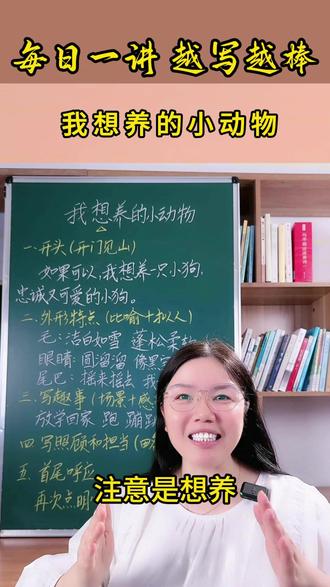 每日一讲 越写越棒
我想养的小动物
我想养的小动物
一.开头(开门见山)
如果可以,我想养一只小狗,
忠诚又可爱的小狗。
二.外形特点(比喻+拟人)
毛:洁白如雪 蓬松柔
眼睛:圆溜溜 像黑宝
尾巴:摇来摇去 我
三.写趣事(场景+感
放学回家 跑 蹦
四 写照顾和担当
五 首尾呼应
再次点明
注意是想养